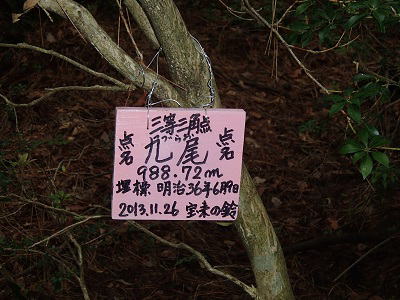 三等三角点
点名 九尾 点名
988.72m
埋標 明治36年6月
2013.11.26 宝来の鈴